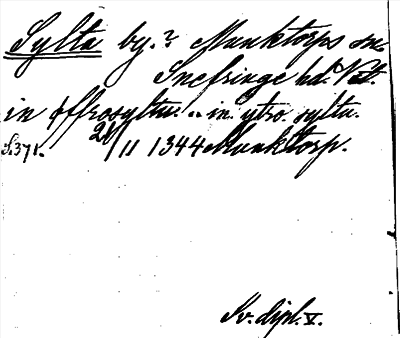 Sylta by.? Munktorps sn.
Snefringe hd. Vst.
in øffrosyltu. .. in ytro syltu.
S. 371. 21/11 1344 Munktorp.
Sv. dipl. V.